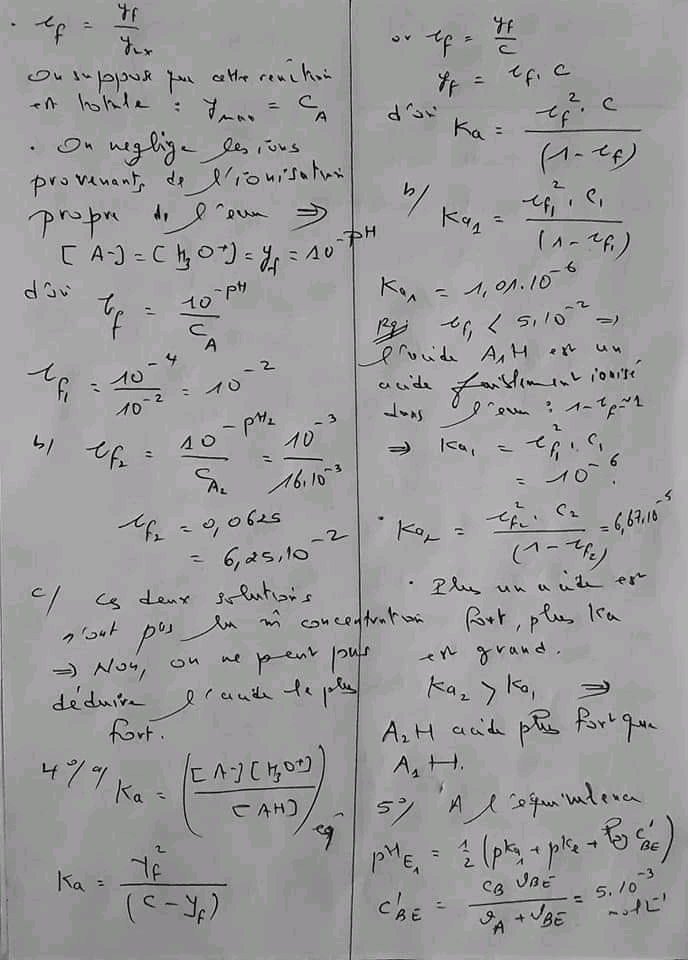 . τf = yf / ymax
On suppose que cette réaction
est totale : ymax = CA
. On néglige les ions
provenants de l'ionisation
propre de l'eau ⇒
[A-] = [H3O+] = yf = 10^-pH
d'où τf = 10^-pH / CA
τf1 = 10^-4 / 10^-2 = 10^-2
b/ τf2 = 10^-pH2 / CA2 = 10^-3 / 16.10^-3
τf2 = 0,0625
= 6,25.10^-2
c/ Ces deux solutions
n'ont pas la m̂ concentration
⇒ Non, on ne peut pas
déduire l'acide le plus
fort.
4°/ a/ Ka = ([A-][H3O+] / [AH])éq
Ka = yf^2 / (C - yf)
or τf = yf / C
yf = τf . C
d'où Ka = τf^2 . C / (1 - τf)
b/ Ka1 = τf1^2 . C1 / (1 - τf1)
Ka1 = 1,01.10^-6
Rq: τf1 < 5.10^-2 ⇒
l'acide A1H est un
acide faiblement ionisé
dans l'eau : 1-τf ≈ 1
⇒ Ka1 = τf1^2 . C1
= 10^-6.
. Ka2 = τf2^2 . C2 / (1 - τf2) = 6,67.10^-5
. Plus un acide est
fort, plus Ka
est grand.
Ka2 > Ka1 ⇒
A2H acide plus fort que
A1H.
5°/ A l'équivalence
pHE1 = 1/2 (pka1 + pke + log C'BE)
C'BE = CB VBE / VA + VBE = 5.10^-3 mol L^-1